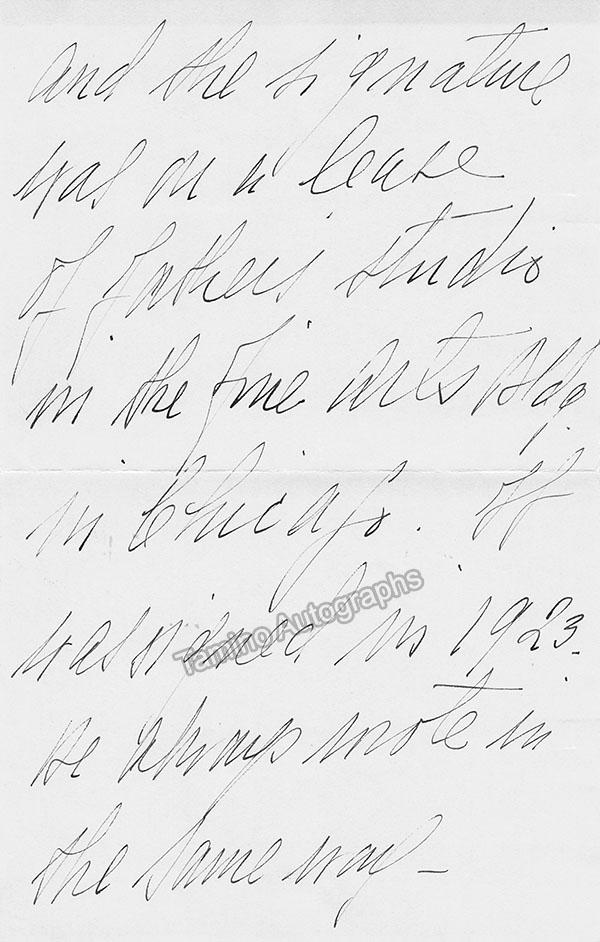 and the signature
was on a lease
of father's studio
in the Fine Arts Bldg
in Chicago. It
was signed in 1923.
He always wrote in
the same way –
Tamino Autographs